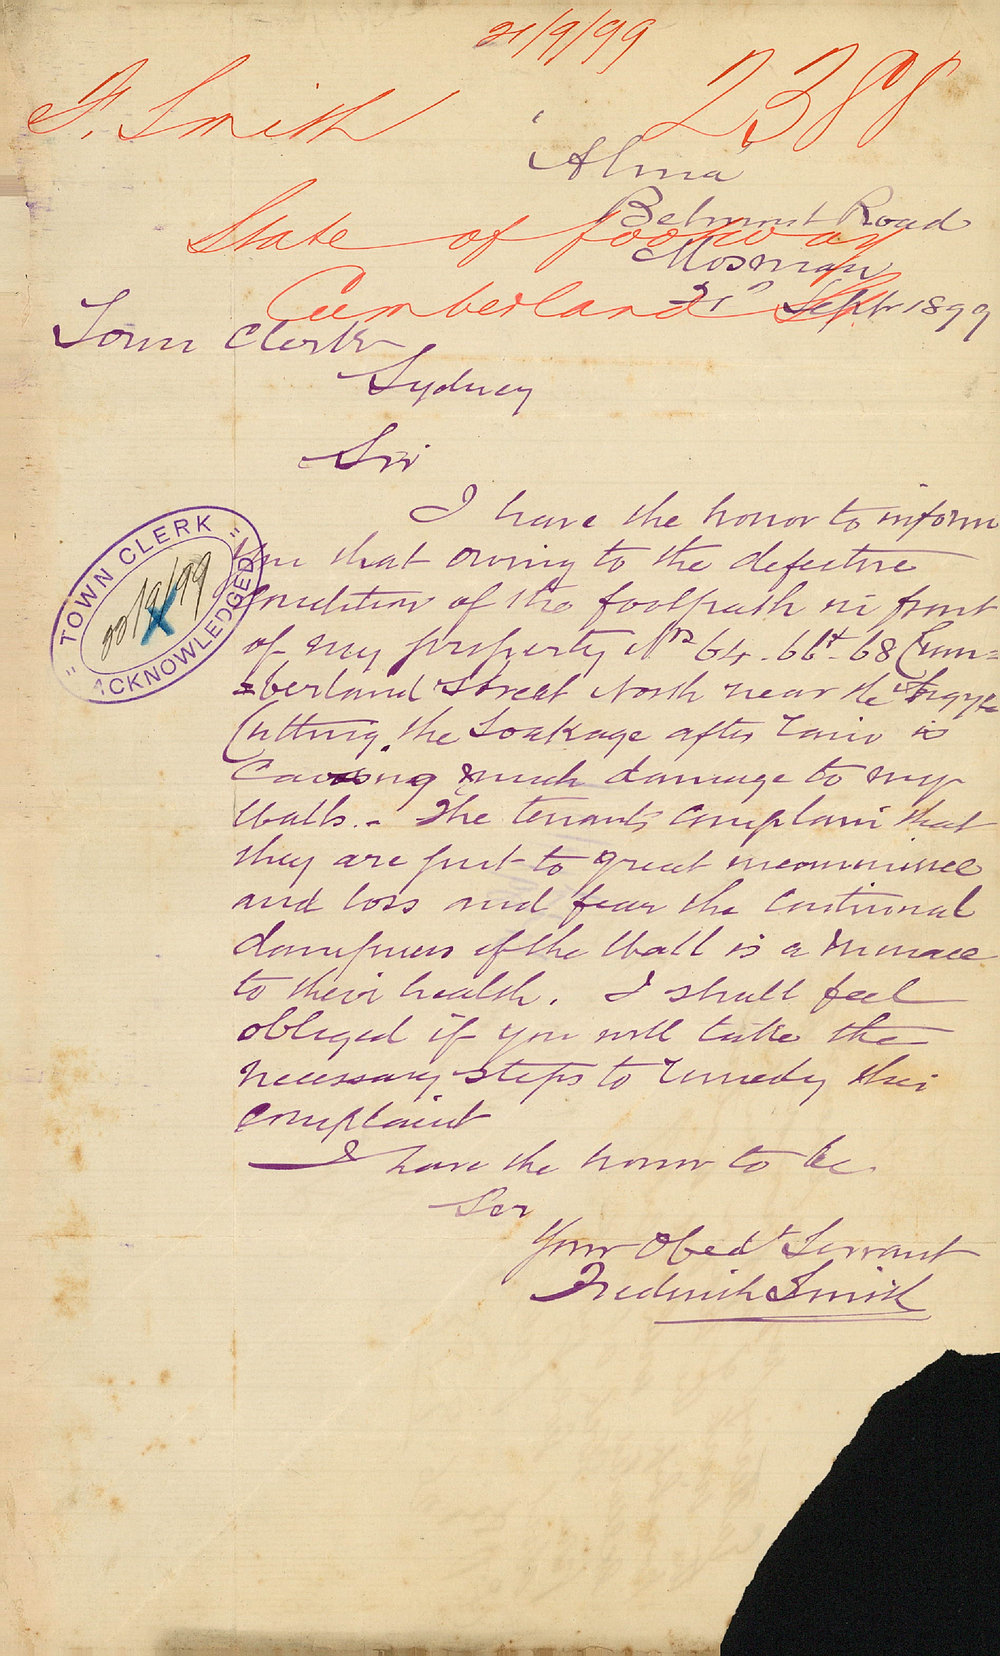 21/9/99
F. Smith
2388
'Alma'
Belmont Road
Mosman
State of footway
Cumberland St
21st Sept 1899
Town Clerk
Sydney
Sir
I have the honor to inform
you that owing to the defective
Condition of the footpath in front
of my property Nos 64. 66 & 68 Cum=
=berland Street North near the Argyle
Cutting, the Soakage after rain is
Causing much damage to my
Walls. - The tenants complain that
they are put to great inconvenience
and loss and fear the Continual
dampness of the Wall is a menace
to their health. I shall feel
obliged if you will take the
necessary steps to remedy this
complaint
I have the honor to be
Sir
Your Obedt Servant
Frederick Smith
"TOWN CLERK"
22/9/99
ACKNOWLEDGED